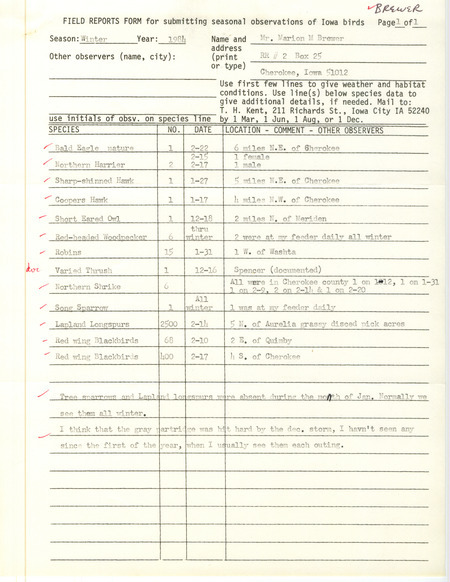 BREWER
FIELD REPORTS FORM for submitting seasonal observations of Iowa birds Page 1 of 1
Season: Winter Year: 1984 Name and Mr. Marion M Brewer
address
Other observers (name, city): (print RR # 2 Box 25
or type)
Cherokee, Iowa 51012
Use first few lines to give weather and habitat
conditions. Use line(s) below species data to
give additional details, if needed. Mail to:
T. H. Kent, 211 Richards St., Iowa City IA 52240
use initials of obsv. on species line by 1 Mar, 1 Jun, 1 Aug, or 1 Dec.
SPECIES NO. DATE LOCATION - COMMENT - OTHER OBSERVERS
Bald Eagle mature 1 2-22 6 miles N.E. of Cherokee
2-15 1 female
Northern Harrier 2 2-17 1 male
Sharp-shinned Hawk 1 1-27 5 miles N.E. of Cherokee
Coopers Hawk 1 1-17 4 miles N.W. of Cherokee
Short Eared Owl 1 12-18 2 miles N. of Meriden
thru
Red-headed Woodpecker 6 winter 2 were at my feeder daily all winter
Robins 15 1-31 1 W. of Washta
doc Varied Thrush 1 12-16 Spencer (documented)
Northern Shrike 6 All were in Cherokee county 1 on 1-12, 1 on 1-31
1 on 2-9, 2 on 2-14 & 1 on 2-20
All
Song Sparrow 1 winter 1 was at my feeder daily
Lapland Longspurs 2500 2-14 5 N. of Aurelia grassy disced pick acres
Red wing Blackbirds 68 2-10 2 E. of Quimby
Red wing Blackbirds 400 2-17 4 S. of Cherokee
Tree sparrows and Lapland longspurs were absent during the month of Jan. Normally we
see them all winter.
I think that the gray partridge was hit hard by the dec. storm, I havn't seen any
since the first of the year, when I usually see them each outing.